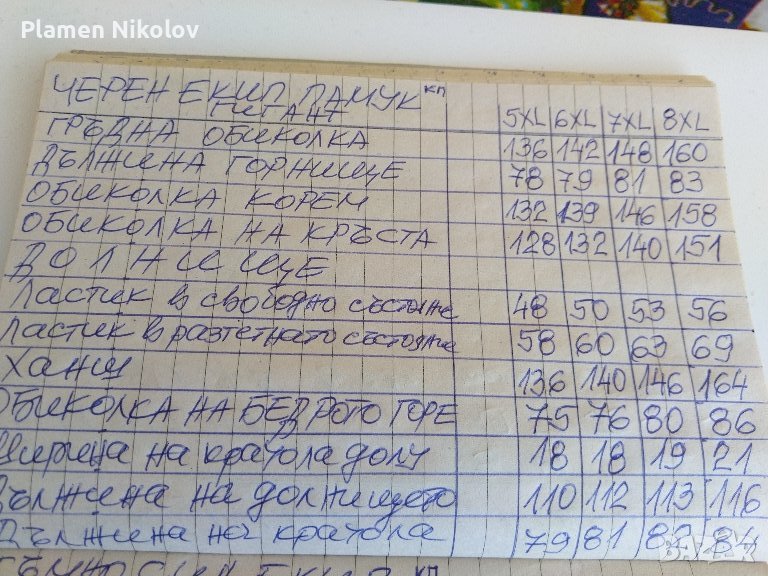 Plamen Nikolov
ЧЕРЕН ЕКИП ПАМУК КП
ГИГАНТ 5XL 6XL 7XL 8XL
ГРЪДНА ОБИКОЛКА 136 142 148 160
ДЪЛЖИНА ГОРНИЩЕ 78 79 81 83
ОБИКОЛКА КОРЕМ 132 139 146 158
ОБИКОЛКА НА КРЪСТА 128 132 140 151
ДОЛНИЩЕ
Ластик в свободно състояние 48 50 53 56
Ластик в разтегнато състояние 58 60 63 69
Ханш 136 140 146 164
ОБИКОЛКА НА БЕДРОТО ГОРЕ 75 76 80 86
Ширина на крачола долу 18 18 19 21
Дължина на долнището 110 112 113 116
Дължина на крачола 79 81 84